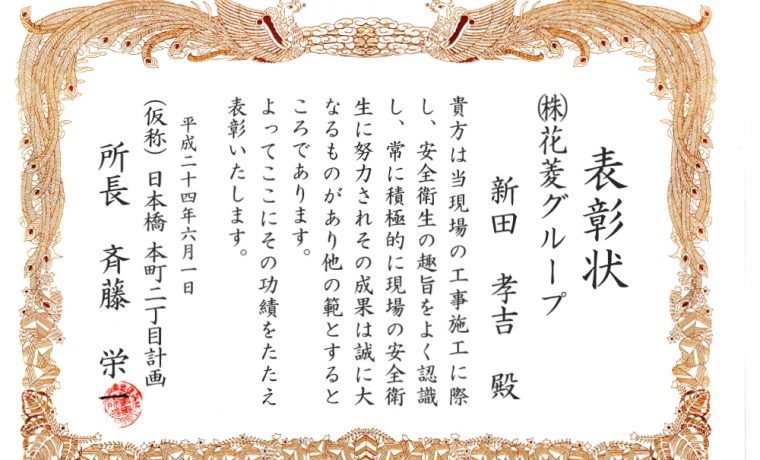 表彰状
㈱花菱グループ
新田 孝吉 殿
貴方は当現場の工事施工に際
し、安全衛生の趣旨をよく認識
し、常に積極的に現場の安全衛
生に努力されその成果は誠に大
なるものがあり他の範とすると
ころであります。
よってここにその功績をたたえ
表彰いたします。
平成二十四年六月一日
(仮称)日本橋 本町二丁目計画
所長 斉藤 栄一